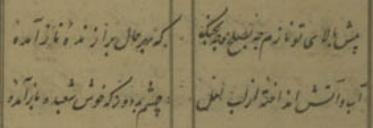 پیش بالای تو نازم چه بصلح و چه بجنگ که بهر حال برازنده ناز آمده
آب و آتش بهم انداخته از لب لعل چشم بد دور که خوش شعبده باز آمده